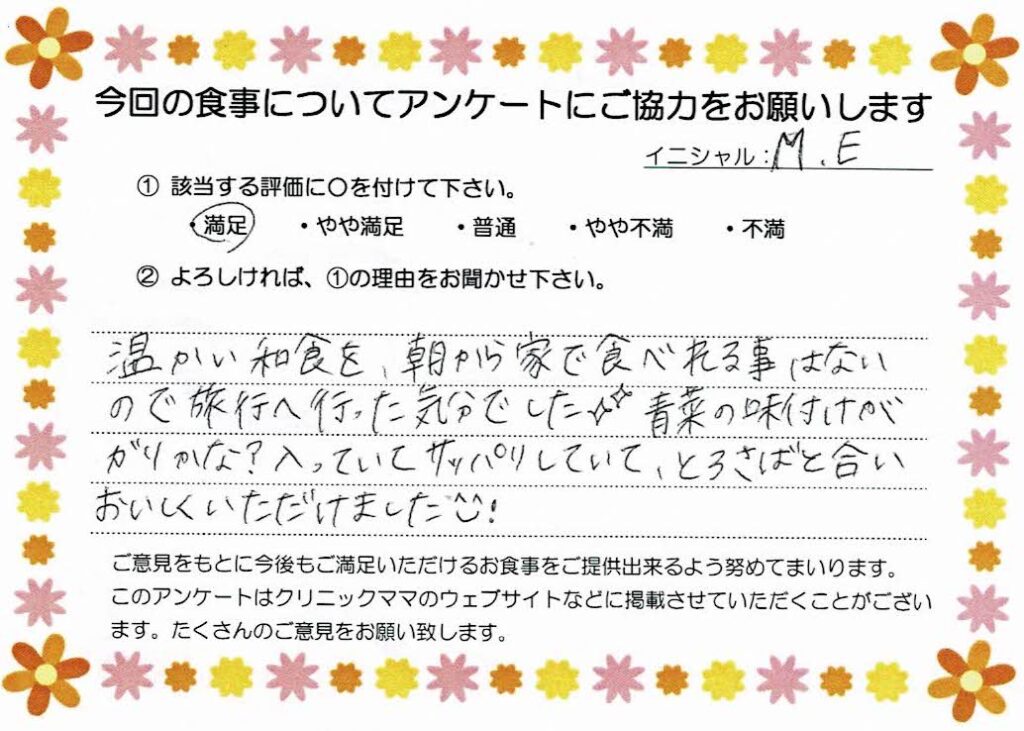 今回の食事についてアンケートにご協力をお願いします
イニシャル：M.E
① 該当する評価に〇を付けて下さい。
・満足 ・やや満足 ・普通 ・やや不満 ・不満
② よろしければ、①の理由をお聞かせ下さい。
温かい和食を、朝から家で食べれる事はない
ので旅行へ行った気分でした✧✧ 青菜の味付けが
がりかな？入っていてサッパリしていて、とろさばと合い
おいしくいただけました^^!
ご意見をもとに今後もご満足いただけるお食事をご提供出来るよう努めてまいります。
このアンケートはクリニックママのウェブサイトなどに掲載させていただくことがござい
ます。たくさんのご意見をお願い致します。